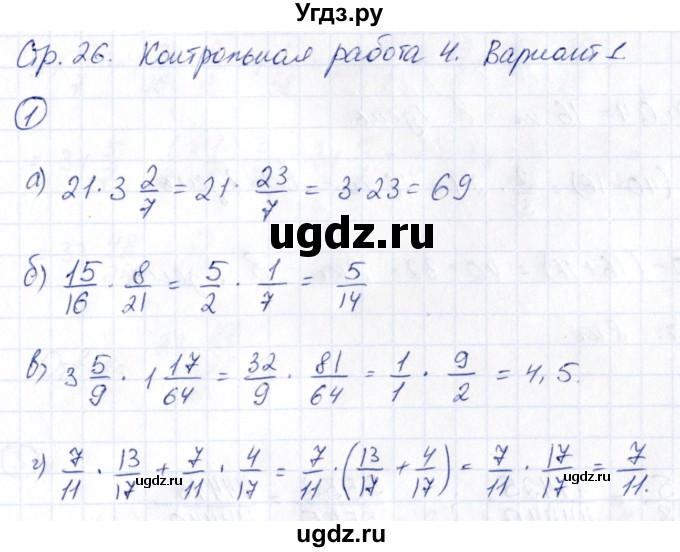 Угдз.ру
Стр. 26. Контрольная работа 4. Вариант 1.
1
а) 21·3 2/7 = 21· 23/7 = 3·23 = 69
ugdz.ru
б) 15/16 · 8/21 = 5/2 · 1/7 = 5/14
в) 3 5/9 · 1 17/64 = 32/9 · 81/64 = 1/1 · 9/2 = 4,5.
г) 7/11 · 13/17 + 7/11 · 4/17 = 7/11 · (13/17 + 4/17) = 7/11 · 17/17 = 7/11.
ugdz.ru ugdz.ru ugdz.ru
ugdz.ru